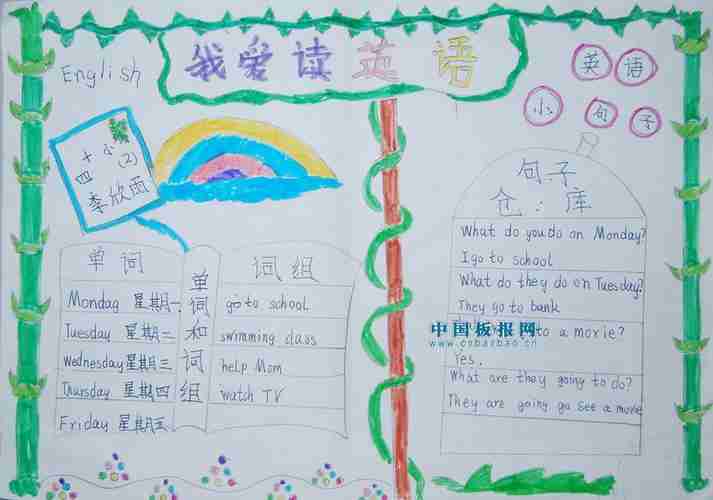 我爱读英语
English
英语
小句子
十小
四(2)
李欣雨
单词
Mondag 星期一
Tuesday 星期二
Wednesday 星期三
Thursday 星期四
Friday 星期五
单词和词组
词组
go to school
swimming class
help Mom
watch TV
句子
仓:库
What do you do on Monday?
I go to school
What do they do on Tuesday?
They go to bank
to a movie?
Yes.
What are they going to do?
They are going go see a movie
中国板报网
www.cnbanbao.cn